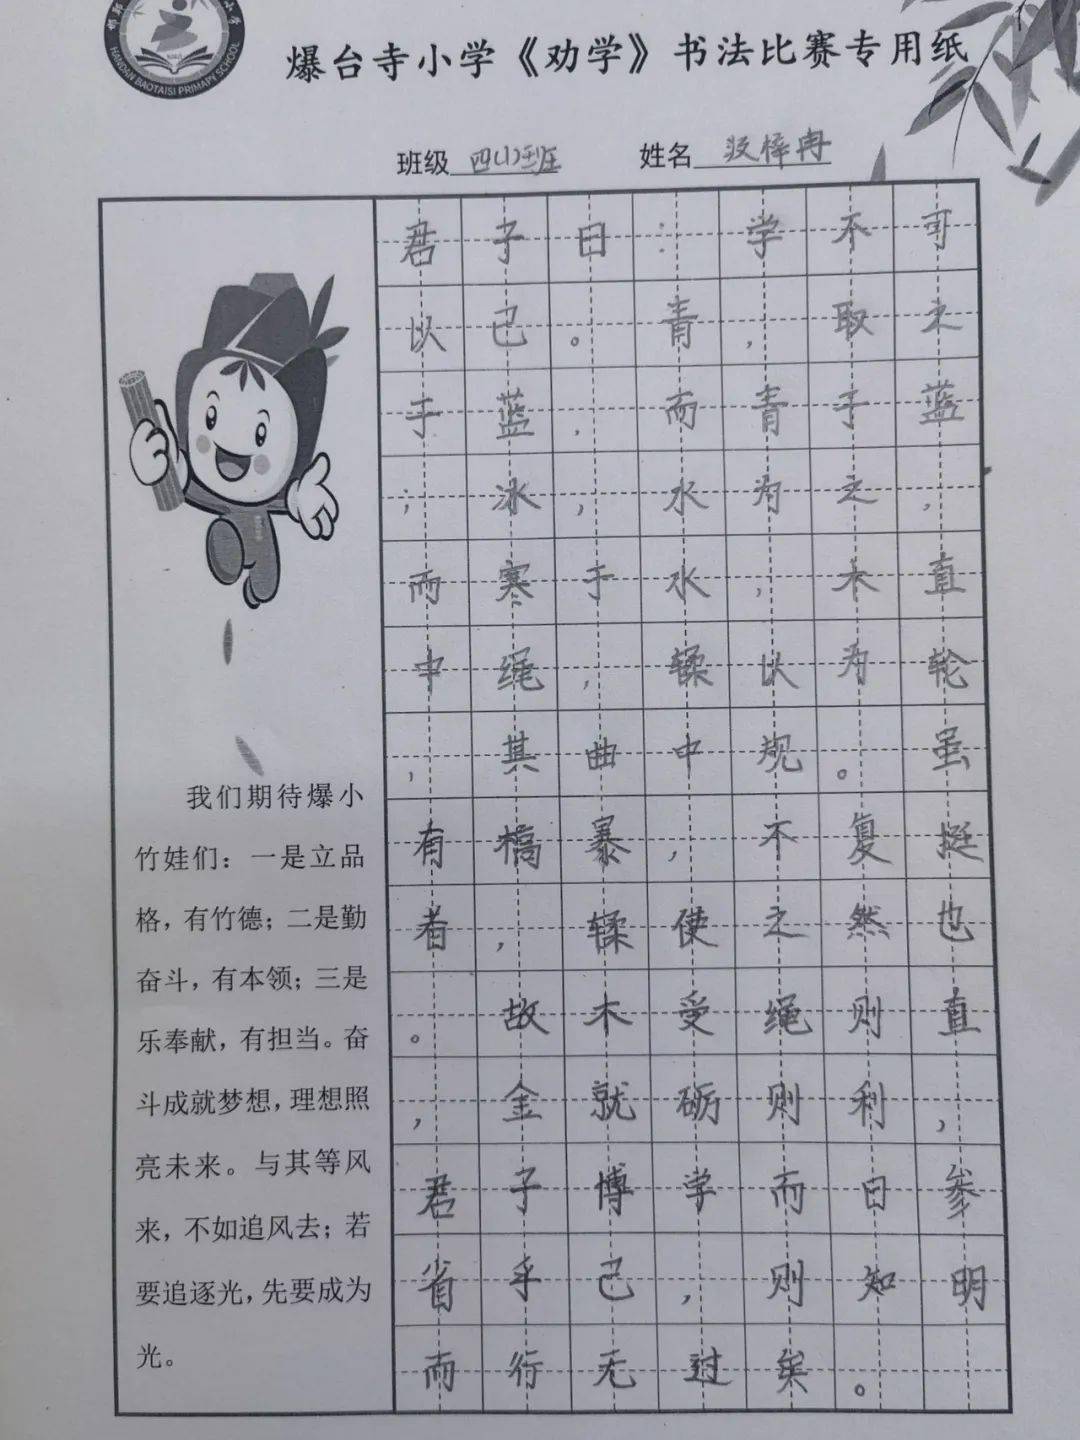 HANDAN BAOTAISI PRIMAPY SCHOOL
爆台寺小学《劝学》书法比赛专用纸
班级 四(1)班 姓名 段梓冉
君子曰：学不可
以己。青，取之
于蓝，而青于蓝
；冰，水为之，
而寒于水，木直
中绳，輮以为轮
，其曲中规。虽
有槁暴，不复挺
者，輮使之然也
。故木受绳则直
，金就砺则利，
君子博学而日参
省乎己，则知明
而行无过矣。
我们期待爆小
竹娃们：一是立品
格，有竹德；二是勤
奋斗，有本领；三是
乐奉献，有担当。奋
斗成就梦想，理想照
亮未来。与其等风
来，不如追风去；若
要追逐光，先要成为
光。